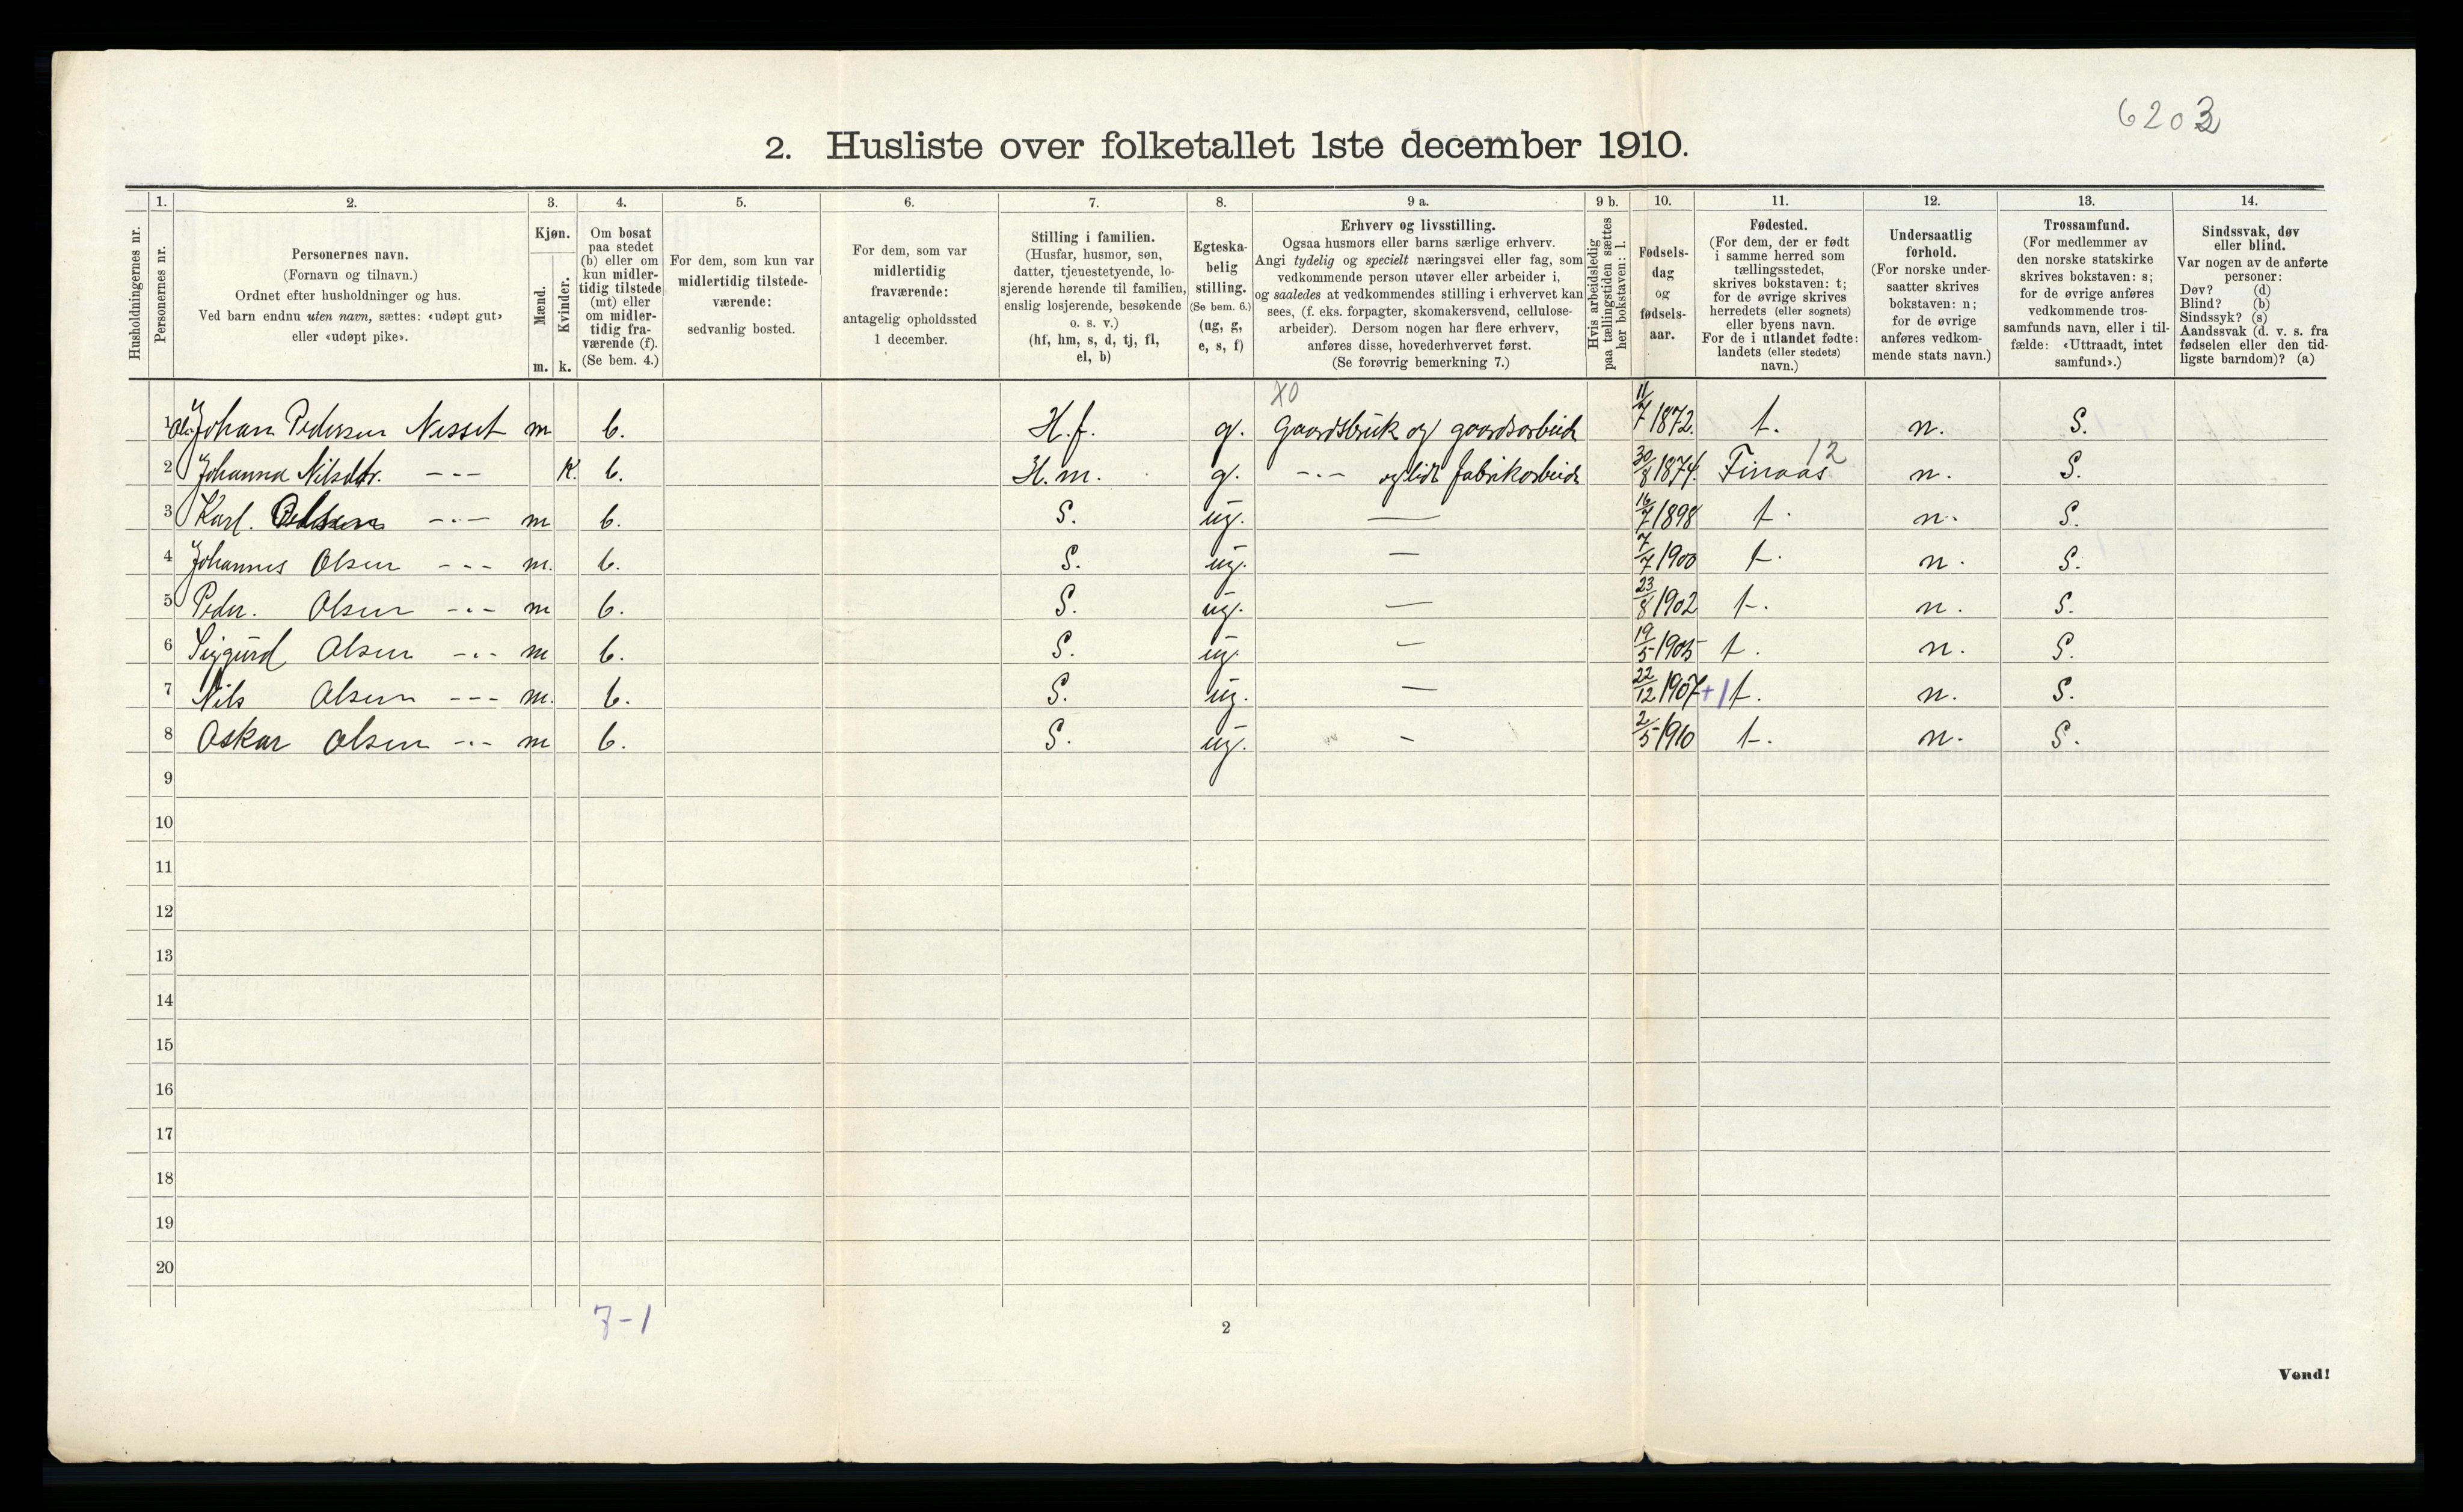 6203
2. Husliste over folketallet 1ste december 1910.
Husholdningernes nr.
1.
Personernes nr.
2.
Personernes navn.
(Fornavn og tilnavn.)
Ordnet efter husholdninger og hus.
Ved barn endnu uten navn, sættes: «udøpt gut»
eller «udøpt pike».
3.
Kjøn.
Mænd.
Kvinder.
m. k.
4.
Om bosat
paa stedet
(b) eller om
kun midler-
tidig tilstede
(mt) eller
om midler-
tidig fra-
værende (f).
(Se bem. 4.)
5.
For dem, som kun var
midlertidig tilstede-
værende:
sedvanlig bosted.
6.
For dem, som var
midlertidig
fraværende:
antagelig opholdssted
1 december.
7.
Stilling i familien.
(Husfar, husmor, søn,
datter, tjenestetyende, lo-
sjerende hørende til familien,
enslig losjerende, besøkende
o. s. v.)
(hf, hm, s, d, tj, fl,
el, b)
8.
Egteska-
belig
stilling.
(Se bem. 6.)
(ug, g,
e, s, f)
9 a.
Erhverv og livsstilling.
Ogsaa husmors eller barns særlige erhverv.
Angi tydelig og specielt næringsvei eller fag, som
vedkommende person utøver eller arbeider i,
og saaledes at vedkommendes stilling i erhvervet kan
sees, (f. eks. forpagter, skomakersvend, cellulose-
arbeider). Dersom nogen har flere erhverv,
anføres disse, hovederhvervet først.
(Se forøvrig bemerkning 7.)
9 b.
Hvis arbeidsledig
paa tællingstiden sættes
her bokstaven: l.
10.
Fødsels-
dag
og
fødsels-
aar.
11.
Fødested.
(For dem, der er født
i samme herred som
tællingsstedet,
skrives bokstaven: t;
for de øvrige skrives
herredets (eller sognets)
eller byens navn.
For de i utlandet fødte:
landets (eller stedets)
navn.)
12.
Undersaatlig
forhold.
(For norske under-
saatter skrives
bokstaven: n;
for de øvrige
anføres vedkom-
mende stats navn.)
13.
Trossamfund.
(For medlemmer av
den norske statskirke
skrives bokstaven: s;
for de øvrige anføres
vedkommende tros-
samfunds navn, eller i til-
fælde: «Uttraadt, intet
samfund».)
14.
Sindssvak, døv
eller blind.
Var nogen av de anførte
personer:
Døv? (d)
Blind? (b)
Sindssyk? (s)
Aandssvak (d. v. s. fra
fødselen eller den tid-
ligste barndom)? (a)
X0
1 Johan Pedersen Nesset m b. H.f. g. Gaardsbruk og gaardsarbeide 11/7 1872. t. n. S.
12
2 Johanna Nilsdtr. --- K. b. H.m. g. --- og lidt fabrikarbeide 30/8 1874. Finaas n. S.
3 Karl. Olsen --- m b. S. ug. — 16/7 1898 t. n. S.
4 Johannes Olsen --- m. b. S. ug. — 7/7 1900 t. n. S.
5 Peder. Olsen --- m b. S. ug. — 23/8 1902 t. n. S.
6 Sigurd Olsen --- m b. S. ug. — 19/5 1905 t. n. S.
7 Nils Olsen --- m. b. S. ug. — 22/12 1907 +1 t. n. S.
8 Oskar Olsen --- m b. S. ug. - 2/5 1910 t. n. S.
9
10
11
12
13
14
15
16
17
18
19
20
7-1
2
Vend!